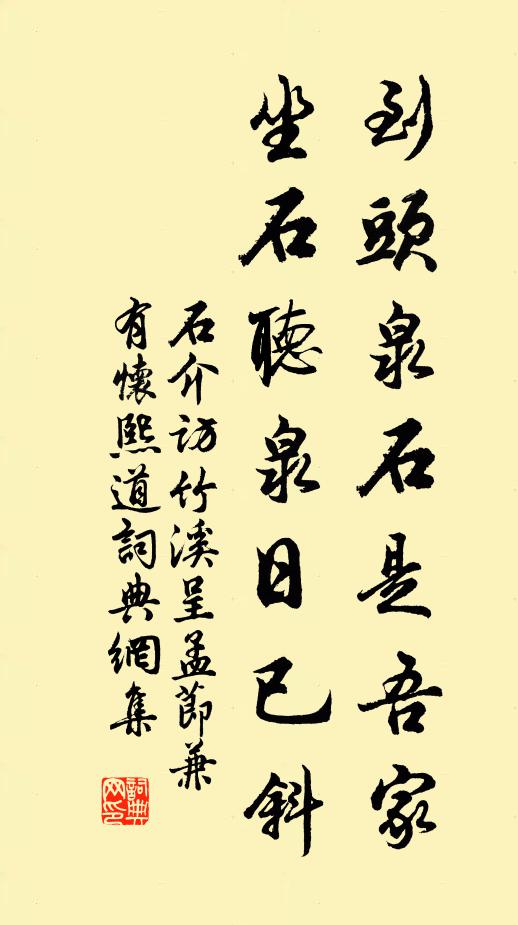 到頭泉石是吾家
坐石聽泉日已斜
石介訪竹溪呈孟節兼
有懷熙道詞典網集
詞典
网印